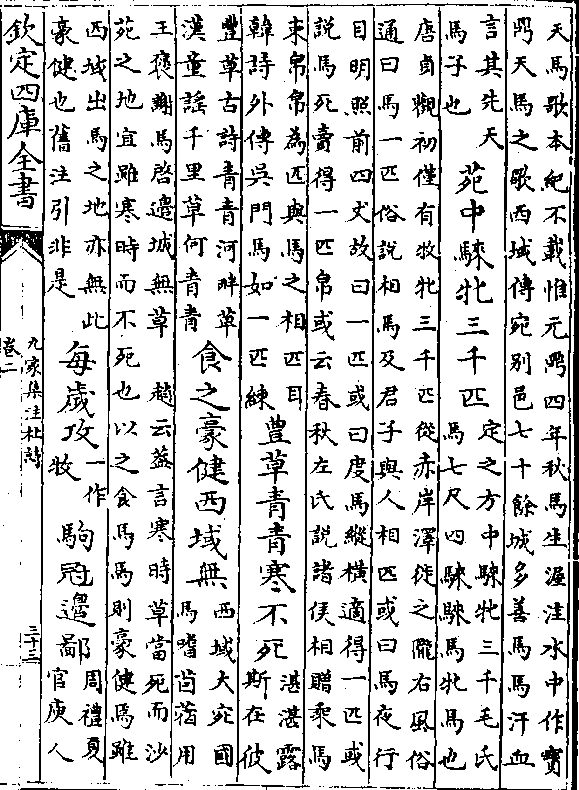 天馬歌本紀不載惟元鼎四年秋馬生渥洼水中作寶
鼎天馬之歌西域傳宛别邑七十餘城多善馬馬汗血
言其先天
馬子也
苑中騋牝三千匹
定之方中騋牝三千毛氏
馬七尺曰騋騋馬牝馬也
唐貞觀初僅有牧牝三千匹從赤岸澤徙之隴右風俗
通曰馬一匹俗説相馬及君子與人相匹或曰馬夜行
目明照前四丈故曰一匹或曰度馬縱横適得一匹或
説馬死賣得一匹帛或云春秋左氏説諸侯相贈乘馬
束帛帛為匹與馬之相匹目
韓詩外傳吳門馬如一匹練
豐草青青寒不死
湛湛露
斯在彼
豐草古詩青青河畔草
漢童謡千里草何青青
食之豪健西域無
西域大宛國
馬嗜苜蓿用
王褒謝馬啓邊城無草 趙云蓋言寒時草當死而沙
苑之地宜雖寒時而不死也以之食馬馬則豪健焉雖
西域出馬之地亦無此
豪健也舊注引非是
每歲攻
一作
牧
駒冠邊鄙
周禮夏
官庾人
欽定四庫全書
九家集注杜詩
卷二
三十三